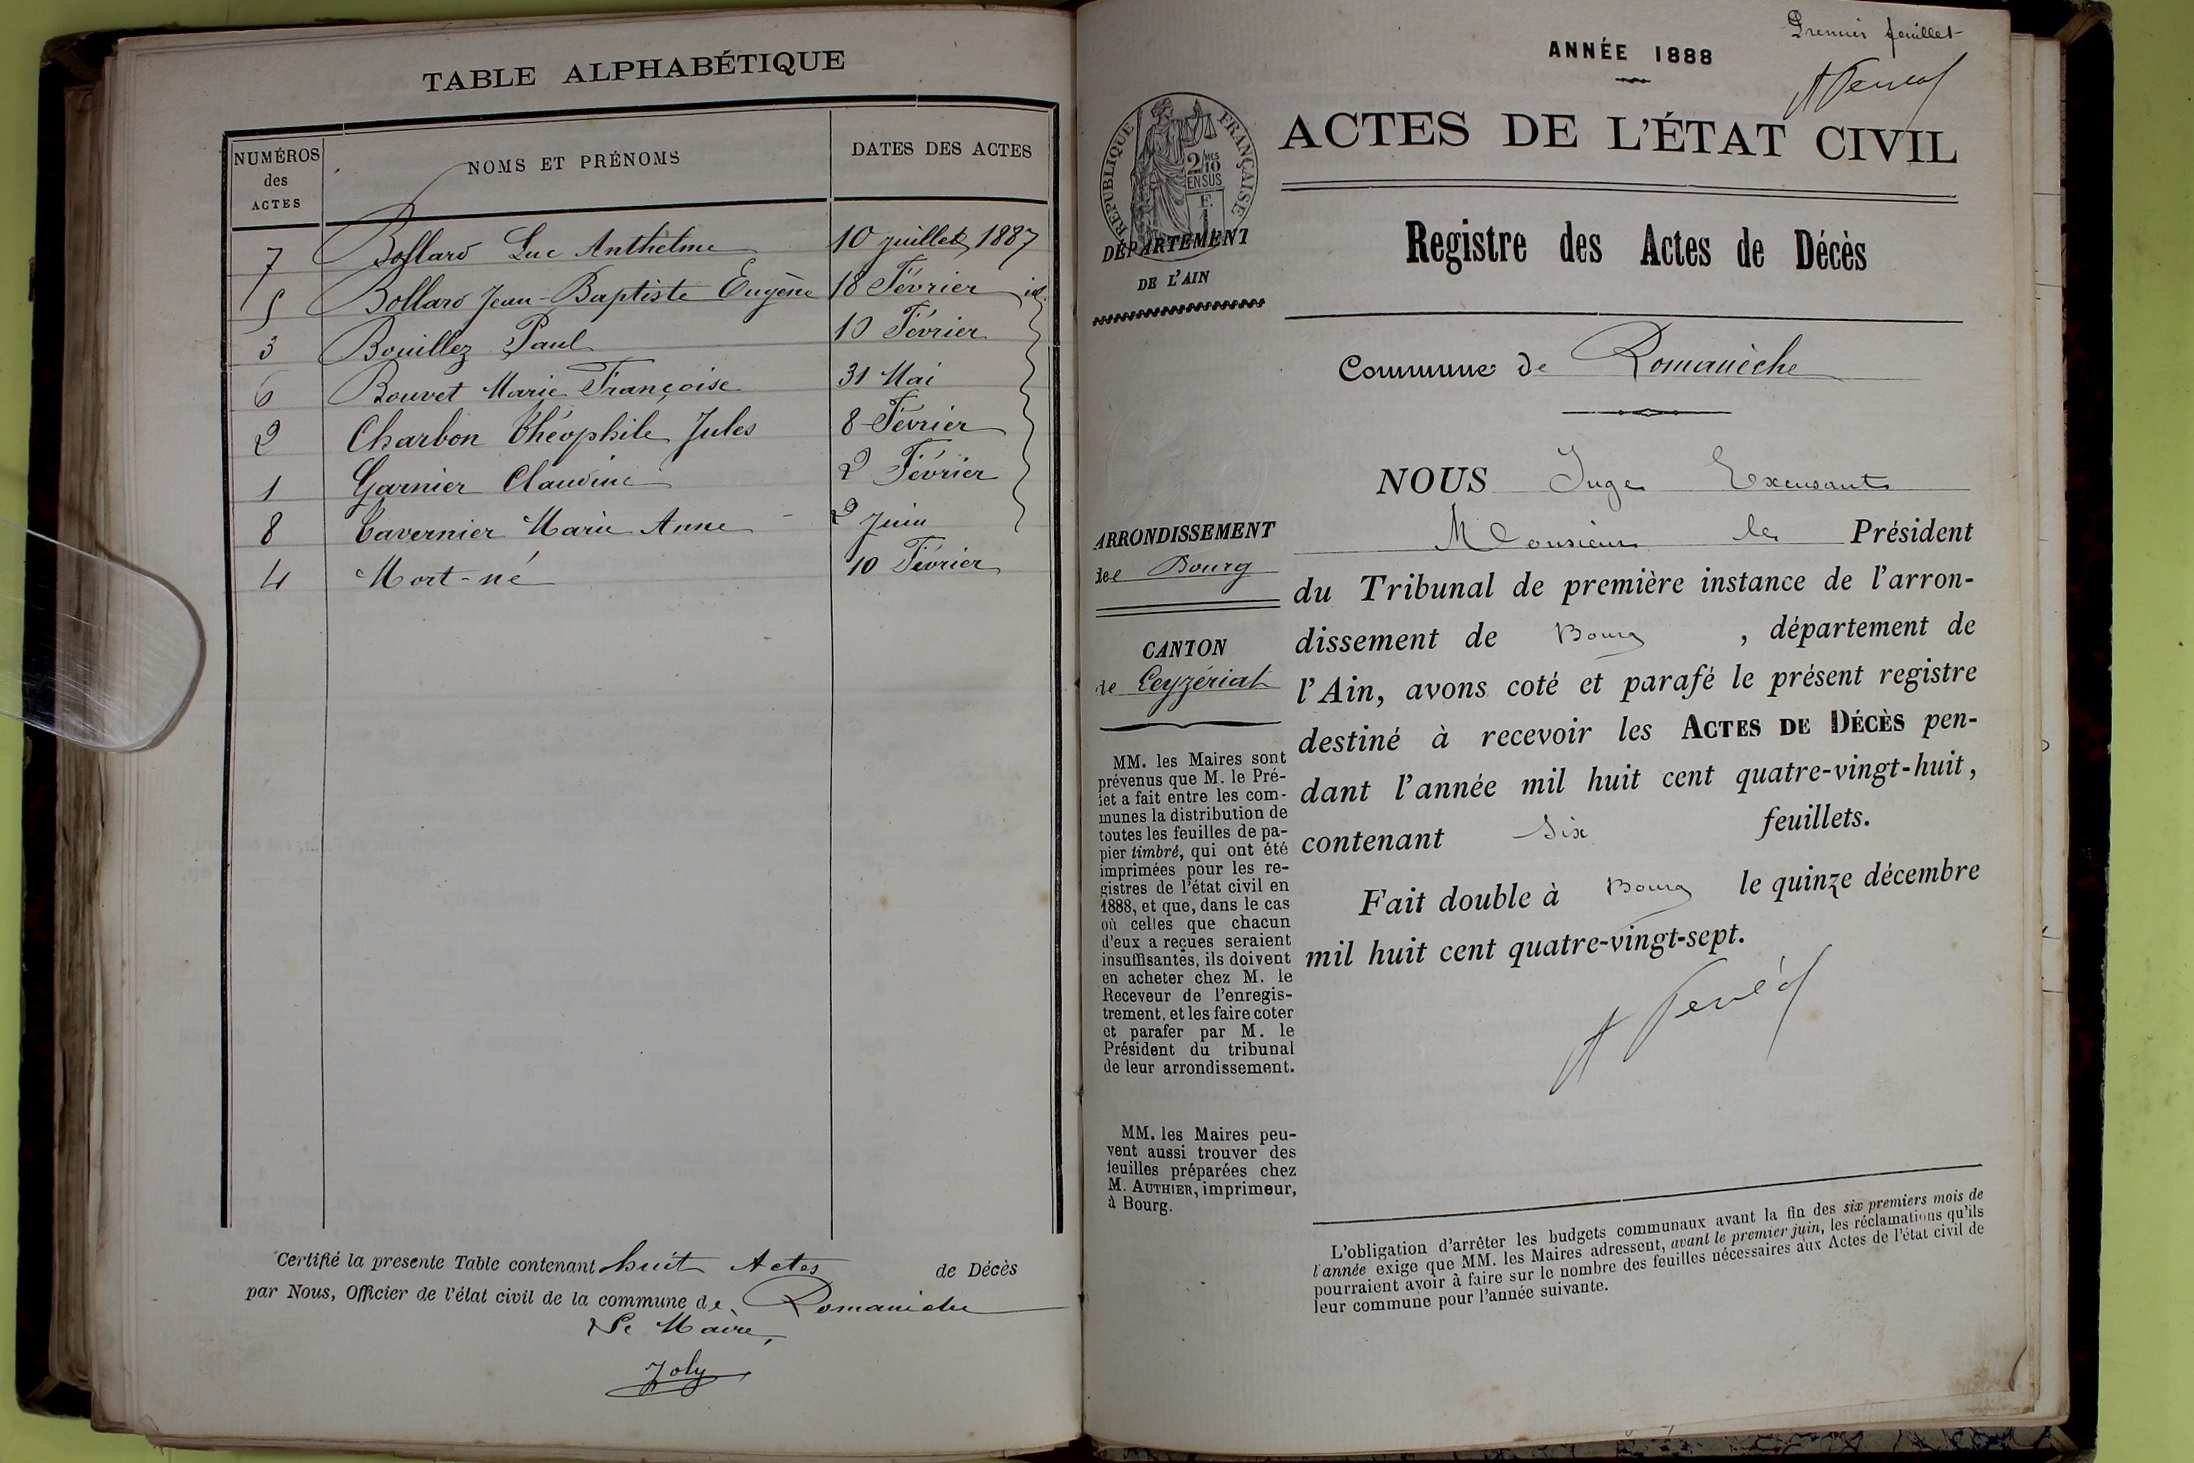 TABLE ALPHABÉTIQUE
NUMÉROS des ACTES NOMS ET PRÉNOMS DATES DES ACTES
7 Bollard Luc Anthelme 10 juillet 1887
5 Bollard Jean-Baptiste Eugène 18 Février id.
3 Bouillez Paul 10 Février
6 Bouvet Marie Françoise 31 Mai
2 Charbon Théophile Jules 8 Février
1 Garnier Claudine 2 Février
8 Tavernier Marie Anne 2 Juin
4 Mort-né 10 Février
Certifié la présente Table contenant huit Actes de Décès
par Nous, Officier de l'état civil de la commune de Romanèche
Le Maire,
Joly
Premier feuillet
ANNÉE 1888
ACTES DE L'ÉTAT CIVIL
RÉPUBLIQUE FRANÇAISE
2/10 EN SUS
DÉPARTEMENT
DE L'AIN
Registre des Actes de Décès
Commune de Romanèche
ARRONDISSEMENT
de Bourg
CANTON
de Ceyzériat
MM. les Maires sont
prévenus que M. le Pré-
fet a fait entre les com-
munes la distribution de
toutes les feuilles de pa-
pier timbré, qui ont été
imprimées pour les re-
gistres de l'état civil en
1888, et que, dans le cas
où celles que chacun
d'eux a reçues seraient
insuffisantes, ils doivent
en acheter chez M. le
Receveur de l'enregis-
trement, et les faire coter
et parafer par M. le
Président du tribunal
de leur arrondissement.
MM. les Maires peu-
vent aussi trouver des
feuilles préparées chez
M. AUTHIER, imprimeur,
à Bourg.
NOUS Juge Excusant
Monsieur le Président
du Tribunal de première instance de l'arron-
dissement de Bourg, département de
l'Ain, avons coté et parafé le présent registre
destiné à recevoir les ACTES DE DÉCÈS pen-
dant l'année mil huit cent quatre-vingt-huit,
contenant Six feuillets.
Fait double à Bourg le quinze décembre
mil huit cent quatre-vingt-sept.
L'obligation d'arrêter les budgets communaux avant la fin des six premiers mois de
l'année exige que MM. les Maires adressent, avant le premier juin, les réclamations qu'ils
pourraient avoir à faire sur le nombre des feuilles nécessaires aux Actes de l'état civil de
leur commune pour l'année suivante.